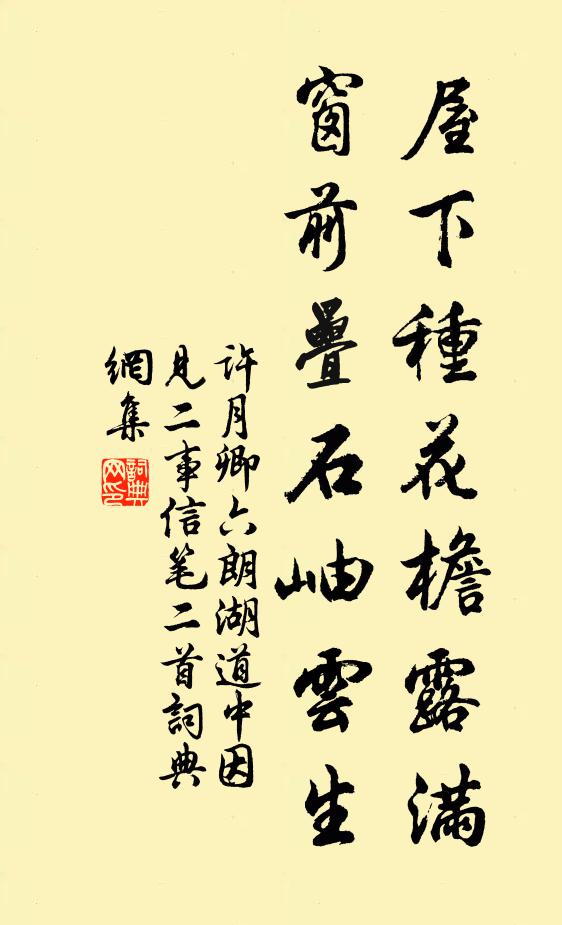 屋下種花檐露滿
窗前疊石岫雲生
許月卿六朗湖道中因
見二事信笔二首詞典
網集
詞典
网印